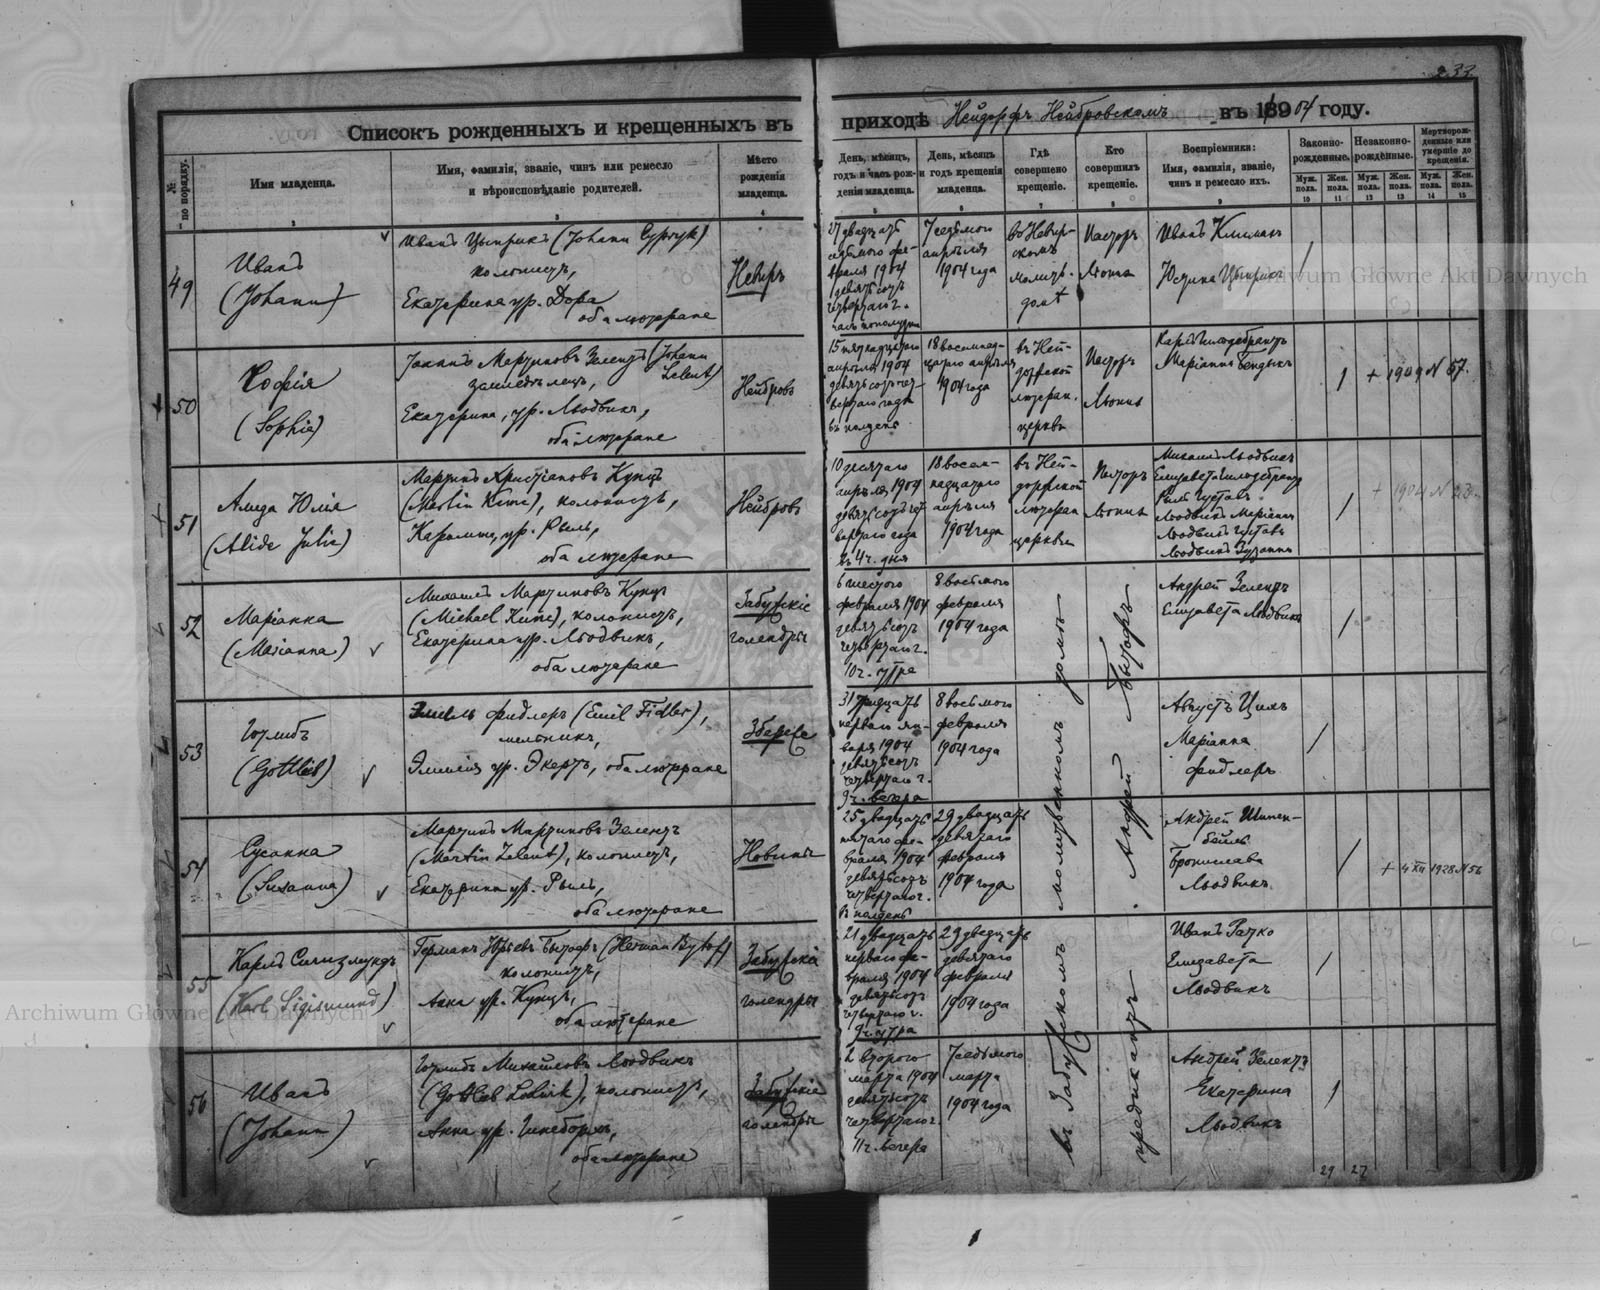 233
Списокъ рожденныхъ и крещенныхъ въ приходѣ Нейдорфъ Нейбровскомъ въ 1904 году.
№ по порядку.
Имя младенца.
Имя, фамилія, званіе, чинъ или ремесло и вѣроисповѣданіе родителей.
Мѣсто рожденія младенца.
День, мѣсяцъ, годъ и часъ рожденія младенца.
День, мѣсяцъ и годъ крещенія младенца.
Гдѣ совершено крещеніе.
Кто совершилъ крещеніе.
Воспріемники: Имя, фамилія, званіе, чинъ и ремесло ихъ.
Законнорожденные.
Незаконнорожденные.
Мертворожденные или умершіе до крещенія.
Муж. пола.
Жен. пола.
Муж. пола.
Жен. пола.
Муж. пола.
Жен. пола.
1 2 3 4 5 6 7 8 9 10 11 12 13 14 15
49
Иванъ
(Johann)
Иванъ Цыприкъ (Johann Cypryk)
колонистъ,
Екатерина ур. Дора
оба лютеране
Невиръ
27 двадцать
седьмого фе-
враля 1904
девятьсотъ
четвертаго г.
7 седьмого
апрѣля
1904 года
въ Невир-
скомъ
молитв.
домѣ
Пасторъ
Иванъ Климакъ
Юстина Цыприкъ
50
Софія
(Sophie)
Іоганъ Мартиновъ Зелентъ (Johann
Zelent)
земледѣлецъ,
Екатерина, ур. Людвикъ,
оба лютеране
Нейбровъ
15 пятнадцатаго
апрѣля 1904
девятьсотъ чет-
вертаго года
въ полдень
18 восемнад-
цатаго апрѣля
1904 года
въ Ней-
дорфской
лютеран.
церкви
Пасторъ
Карлъ Гильдебрантъ
Маріанна Бендикъ
+ 1909 N 57.
51
Алида Юлія
(Alide Julie)
Мартинъ Христіановъ Кунцъ
(Martin Kunc), колонистъ,
Каролина, ур. Рыль,
оба лютеране
Нейбровъ
10 десятаго
апрѣля 1904
девятьсотъ чет-
вертаго года
въ 4 ч. дня
18 восем-
надцатаго
апрѣля
1904 года
въ Ней-
дорфской
лютеран
церкви
Пасторъ
Михаилъ Людвикъ
Елизавета Гильдебрандъ
Рыль Густавъ
Людвикъ Маріанна
Людвикъ Густавъ
Людвикъ Зузанна
+ 1904 N 23.
52
Маріанна
(Marianna)
Михаилъ Мартиновъ Кунцъ
(Michael Kunc), колонистъ,
Екатерина ур. Людвикъ,
оба лютеране
Забужскіе
голендры
6 шестого
февраля 1904
девятьсотъ
четвертаго г.
10 ч. утра
8 восьмого
февраля
1904 года
Андрей Зелентъ
Елизавета Людвикъ
53
Готлибъ
(Gottlieb)
Эмиль Фидлеръ (Emil Fidler),
мельникъ,
Эмилія ур. Экертъ, оба лютеране
Збереже
31 тридцать
перваго ян-
варя 1904
девятьсотъ
четвертаго г.
9 ч. вечера
8 восьмого
февраля
1904 года
Августъ Цихъ
Маріанна
Фидлеръ
54
Сусанна
(Susanna)
Мартинъ Мартиновъ Зелентъ
(Martin Zelent), колонистъ,
Екатерина ур. Рыль,
оба лютеране
Новины
25 двадцать
пятаго фе-
враля 1904
девятьсотъ
четвертаго г.
въ полдень
29 двадцать
девятаго
февраля
1904 года
Андрей Шипен-
бейль
Бронислава
Людвикъ
+ 4 XII 1928 N 56
55
Карлъ Сигизмундъ
(Karl Sigismund)
Германъ Юрьевъ Бытофъ (Herman Bytoff)
колонистъ,
Анна ур. Кунцъ,
оба лютеране
Забужскіе
голендры
21 двадцать
перваго фе-
враля 1904
девятьсотъ
четвертаго г.
9 ч. утра
29 двадцать
девятаго
февраля
1904 года
Иванъ Рачко
Елизавета
Людвикъ
56
Иванъ
(Johann)
Готлибъ Михайловъ Людвикъ
колонистъ,
Анна ур.
оба лютеране
Забужскіе
голендры
2 второго
марта 1904
девятьсотъ
четвертаго г.
11 ч. вечера
7 седьмого
марта
1904 года
Андрей Зелентъ
Екатерина
Людвикъ
въ Забужскомъ молитвенномъ домѣ
предикантъ Андрей Бытофъ
29 27
Archiwum Główne Akt Dawnych
Archiwum Główne Akt Dawnych